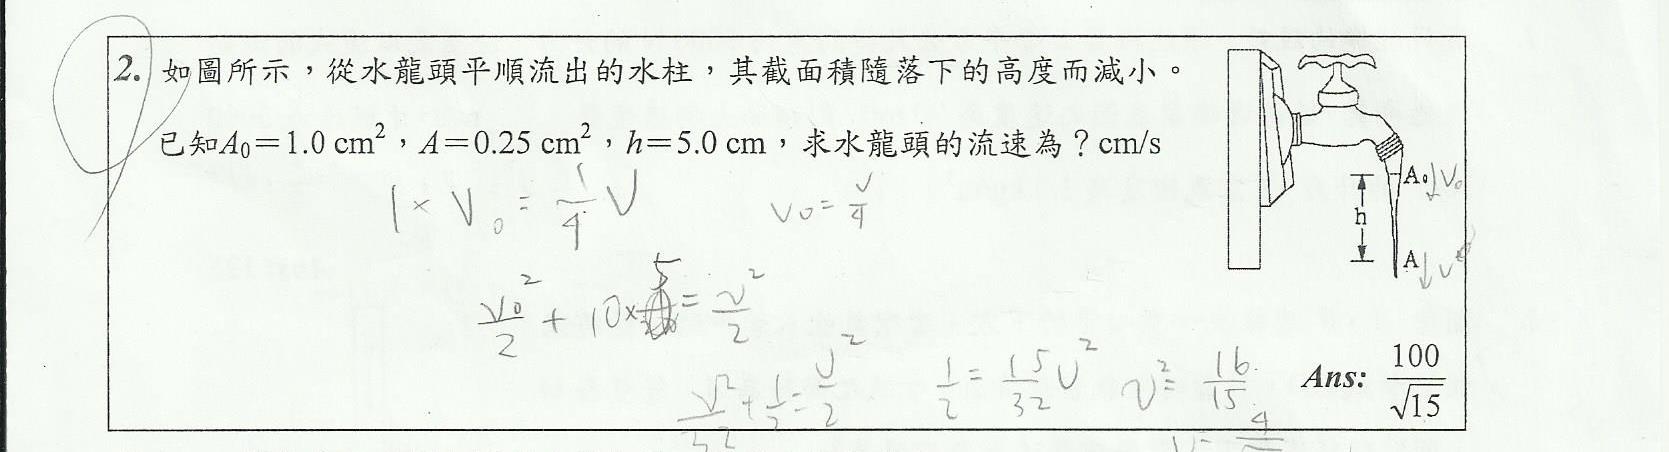 2. 如圖所示，從水龍頭平順流出的水柱，其截面積隨落下的高度而減小。
已知A₀＝1.0 cm²，A＝0.25 cm²，h＝5.0 cm，求水龍頭的流速為？cm/s
A₀ ↓V₀
h
A ↓V
1 × V₀ = 1/4 V
v₀ = v/4
v₀²/2 + 10 × = v²/2
v²/32 + 1/2 = v²/2
1/2 = 15/32 v²
v² = 16/15
v = 4
Ans: 100/√15